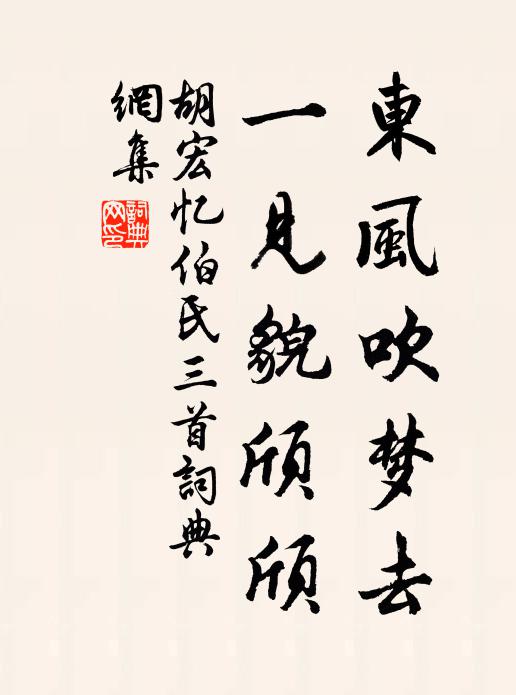 東風吹梦去
一見貌頎頎
胡宏忆伯氏三首詞典
網集
詞典
网印